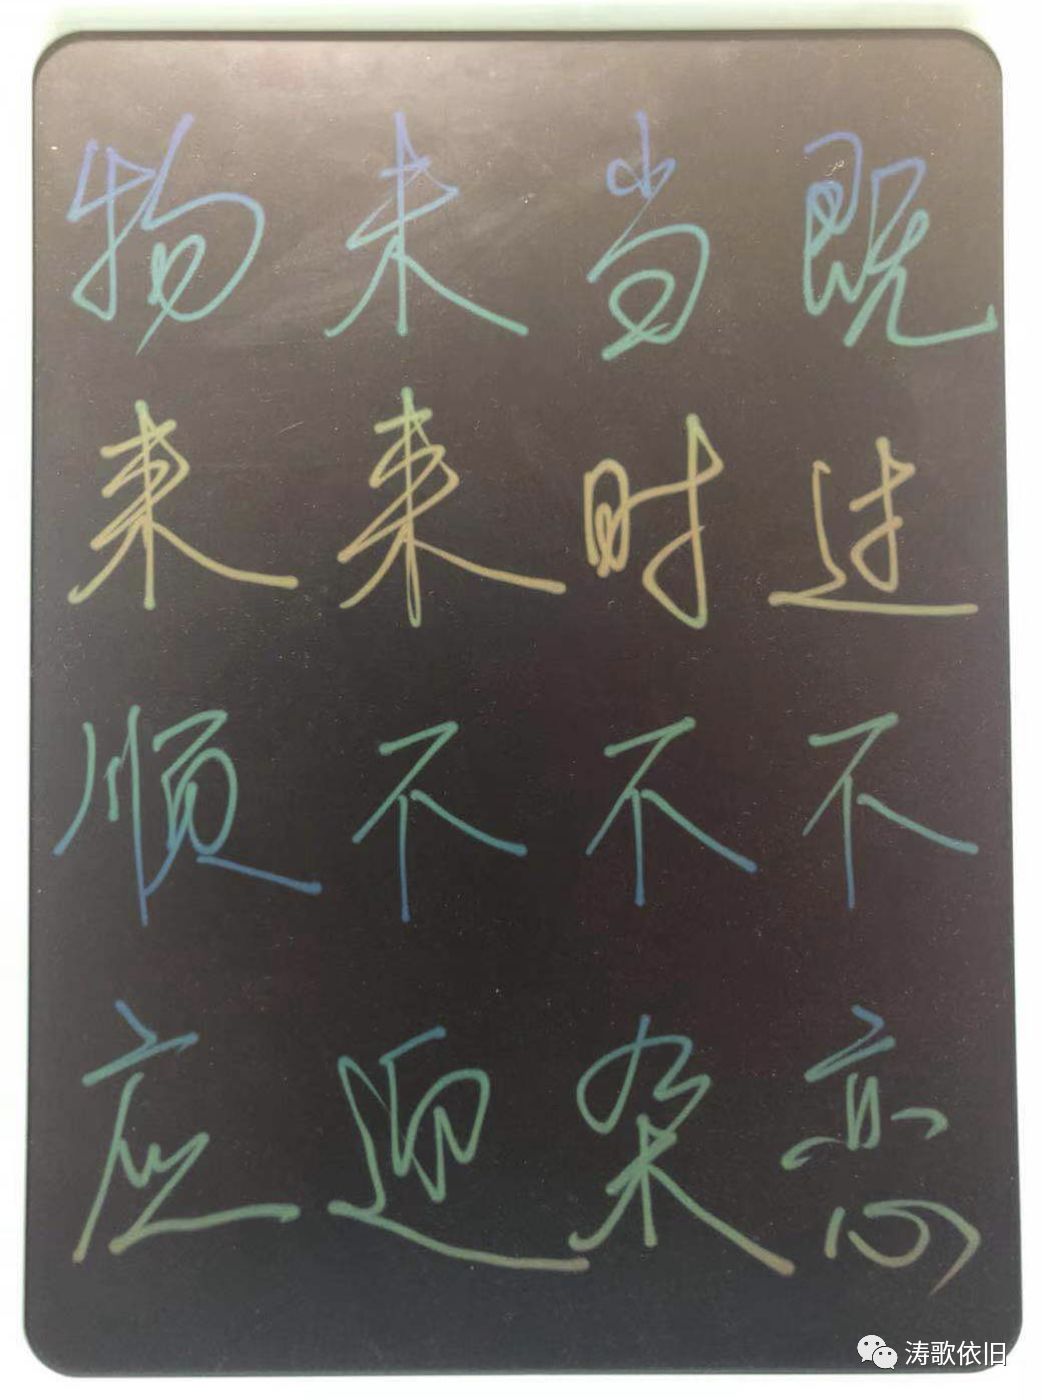 物来顺应
未来不迎
当时不杂
既过不恋
涛歌依旧